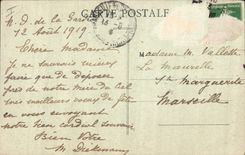 CARTE POSTALE
N. D. de la Garde
12 Août 1919
Chère Madame
Je ne saurais mieux
faire que de déposer
près de notre Mère du Ciel
mes meilleurs voeux de fête
en vous envoyant
notre bon cordial souvenir
Bien vôtre
M
Madame M. Vallette
La Mauvette
Ste Marguerite
Marseille